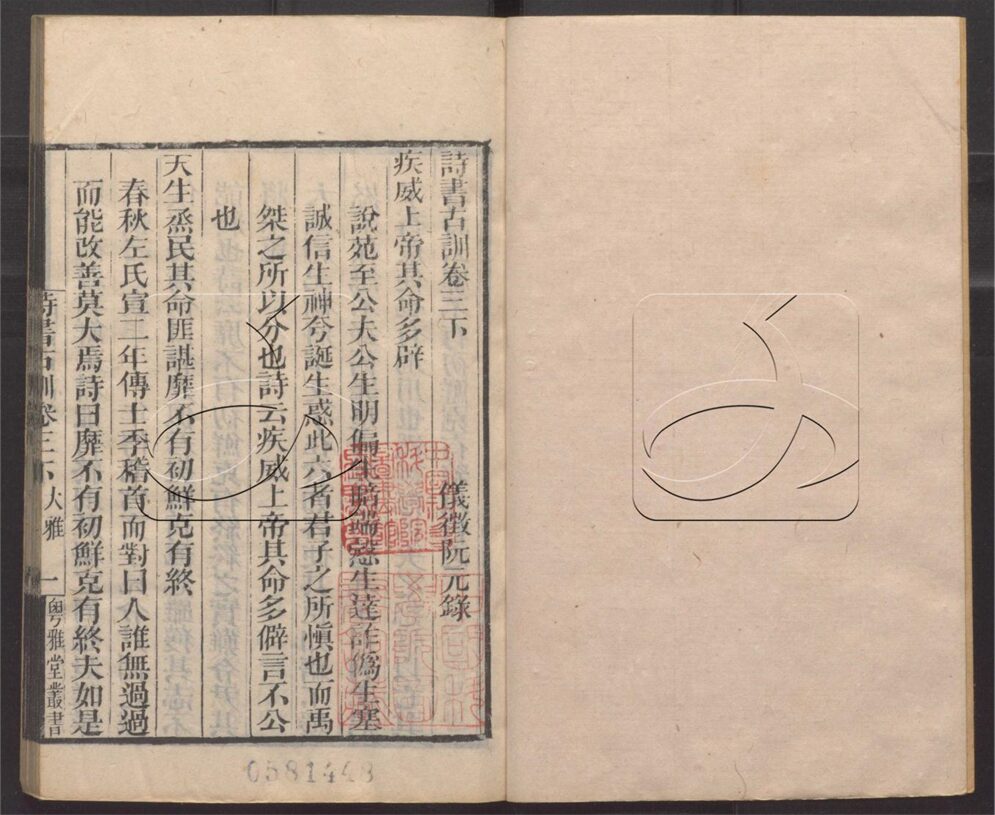 詩書古訓卷三下
儀徵阮元錄
疾威上帝其命多辟
說苑至公夫公生明偏生暗端愨生達詐僞生塞
誠信生神夸誕生惑此六者君子之所愼也而禹
桀之所以分也詩云疾威上帝其命多僻言不公
也
天生烝民其命匪諶靡不有初鮮克有終
春秋左氏宣二年傳士季稽首而對曰人誰無過過
而能改善莫大焉詩曰靡不有初鮮克有終夫如是
詩書古訓卷三下 大雅
一
粵雅堂叢書
0581448